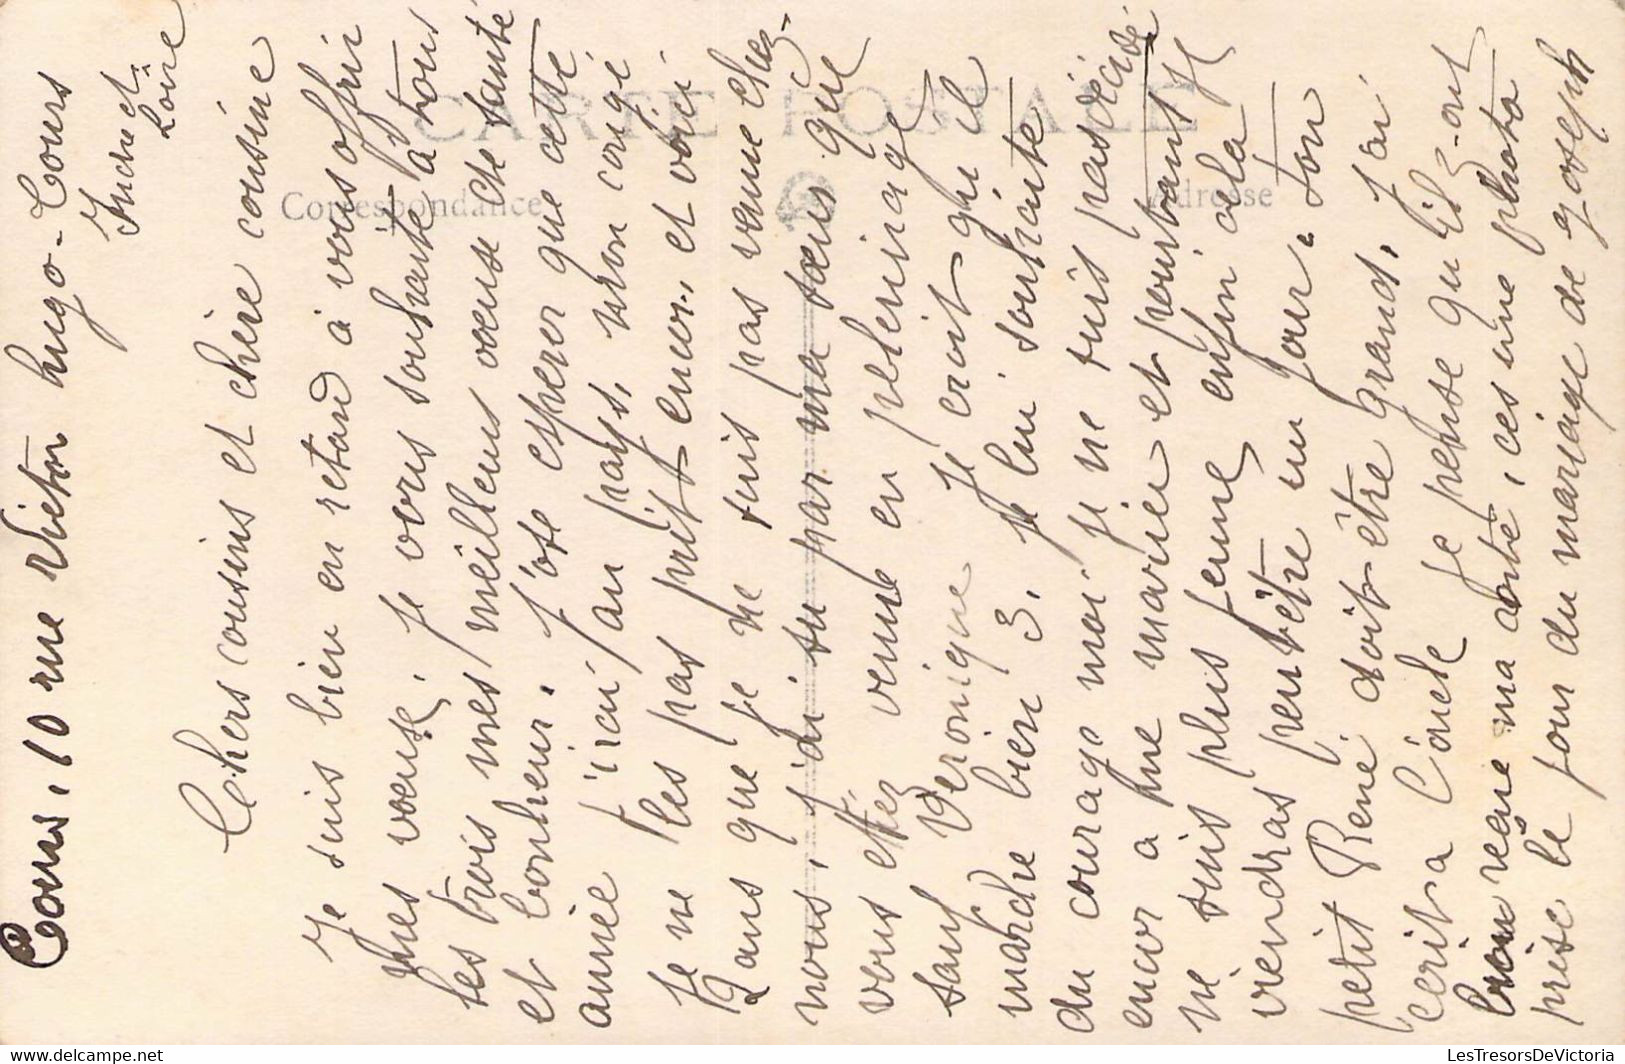 Tours, 10 rue Victor hugo - Tours
Indre et
Loire
Chers cousins et chère cousine
Je suis bien en retard à vous offrir
mes voeux, je vous souhaite à tous
les trois mes meilleurs voeux de santé
et bonheur. J'ose esperer que cette
année j'irai au pays, mon congé
je ne les pas prit encor, et voici
2 ans que je ne suis pas venue chez
nous, j'ai su par ma soeur que
vous etiez venue en pelerinage
sauf Veronique je croit qu'il
marche bien 3, je lui souhaite
du courage moi je ne suis pas décidé
encor a me marier et pourtant je
ne suis plus jeune enfin cela
viendras peutêtre un jour. ton
petit René doit être grand, j'ai
écrit a l'oncle je pense qu'il
reçue ma carte, ces une photo
prise le jour du mariage de Joseph
CARTE POSTALE
Correspondance
Adresse
www.delcampe.net
LesTresorsDeVictoria